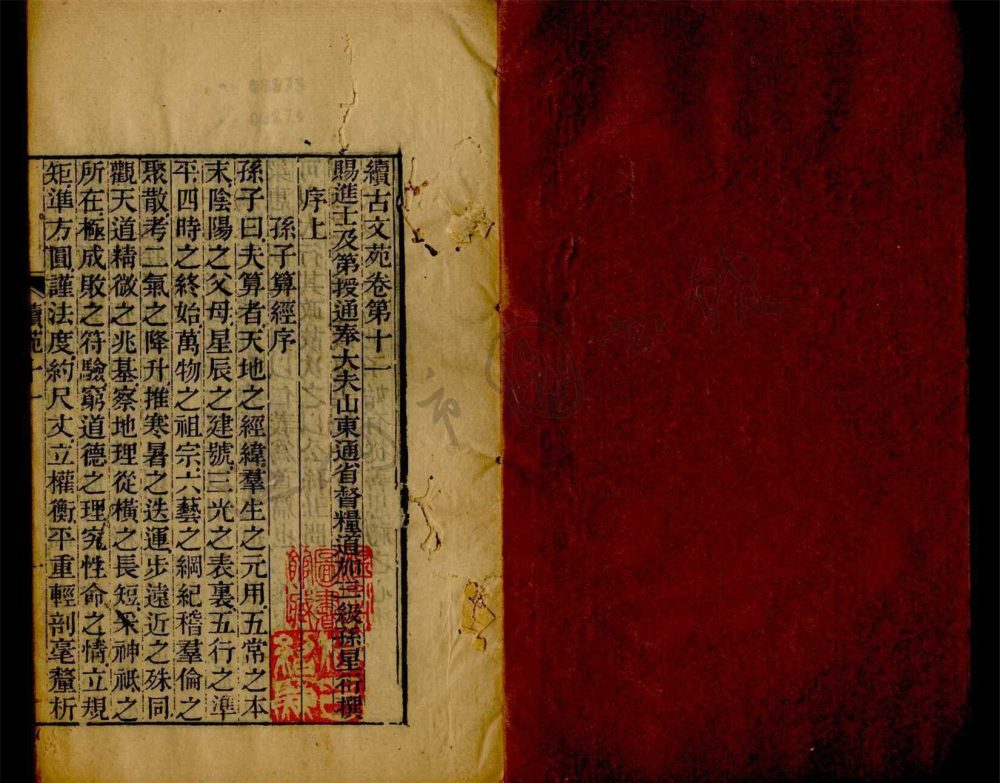 續古文苑卷第十一
賜進士及第授通奉大夫山東通省督糧道加三級孫星衍撰
序上
孫子算經序
孫子曰夫算者天地之經緯羣生之元用五常之本
末陰陽之父母星辰之建號三光之表裏五行之準
平四時之終始萬物之祖宗六藝之綱紀稽羣倫之
聚散考二氣之降升推寒暑之迭運步遠近之殊同
觀天道精微之兆基察地理從橫之長短采神祇之
所在極成敗之符驗窮道德之理究性命之情立規
矩準方圓謹法度約尺丈立權衡平重輕剖毫釐析
續苑十一